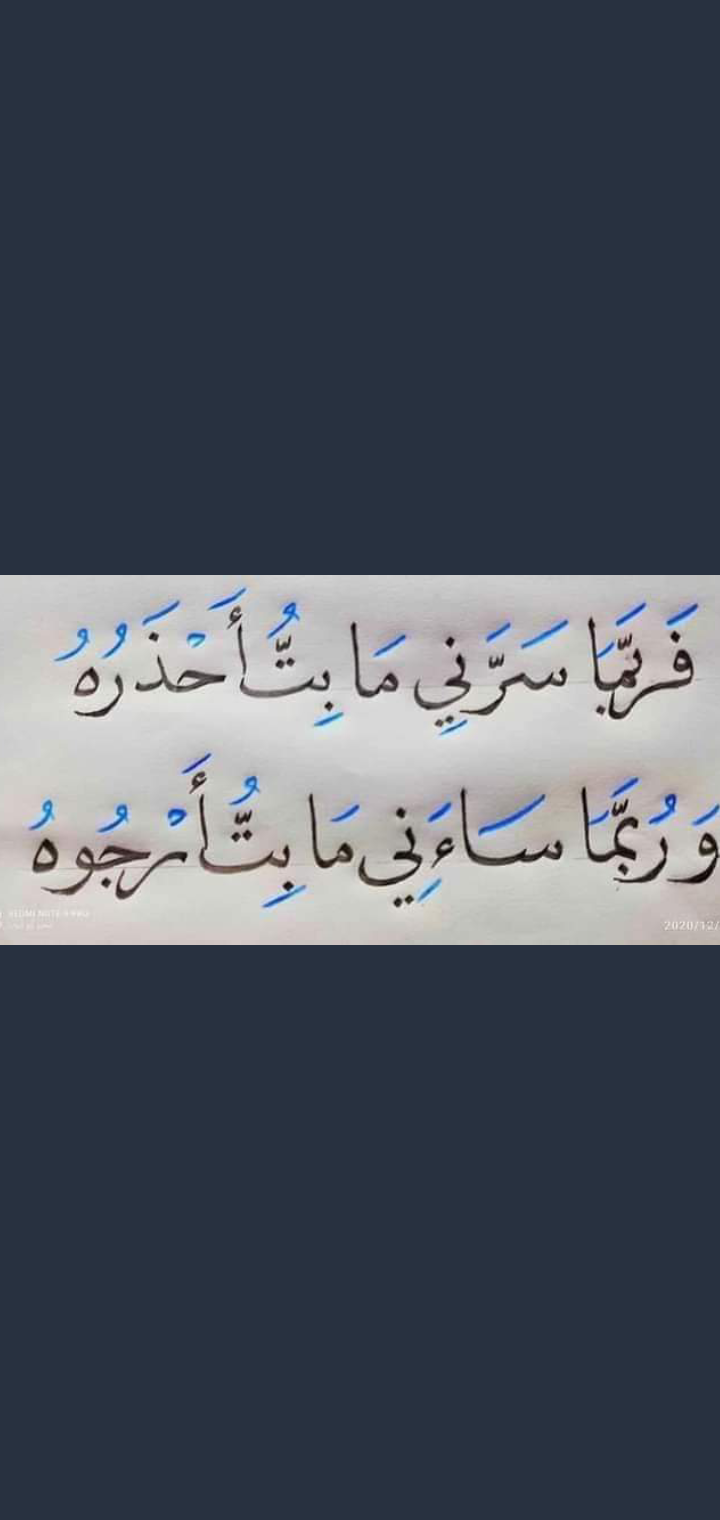 فَرُبَّمَا سَرَّنِي مَا بِتُّ أَحْذَرُهُ
وَرُبَّمَا سَاءَنِي مَا بِتُّ أَرْجُوهُ
2020/12/